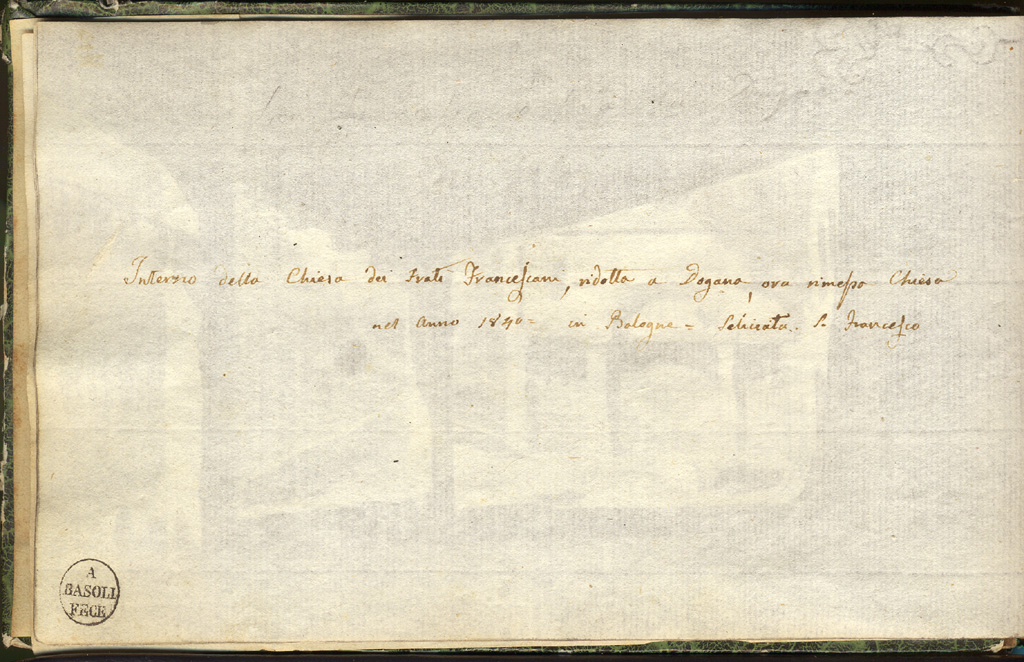 Interno della Chiesa dei Frati Francescani, ridotta a Dogana, ora rimessa Chiesa
nel Anno 1840 = in Bologna = Seliciata. S. Francesco
A
BASOLI
FECE